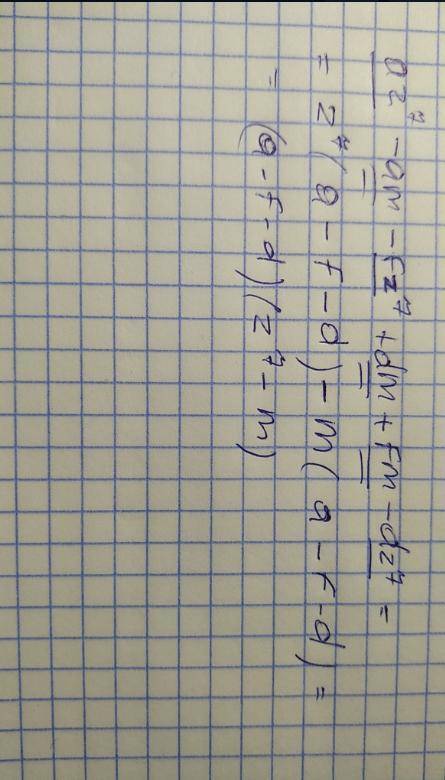 az⁷ - am - fz⁷ + dm + fm - dz⁷ =
= z⁷(a - f - d) - m(a - f - d) =
= (a - f - d)(z⁷ - m)